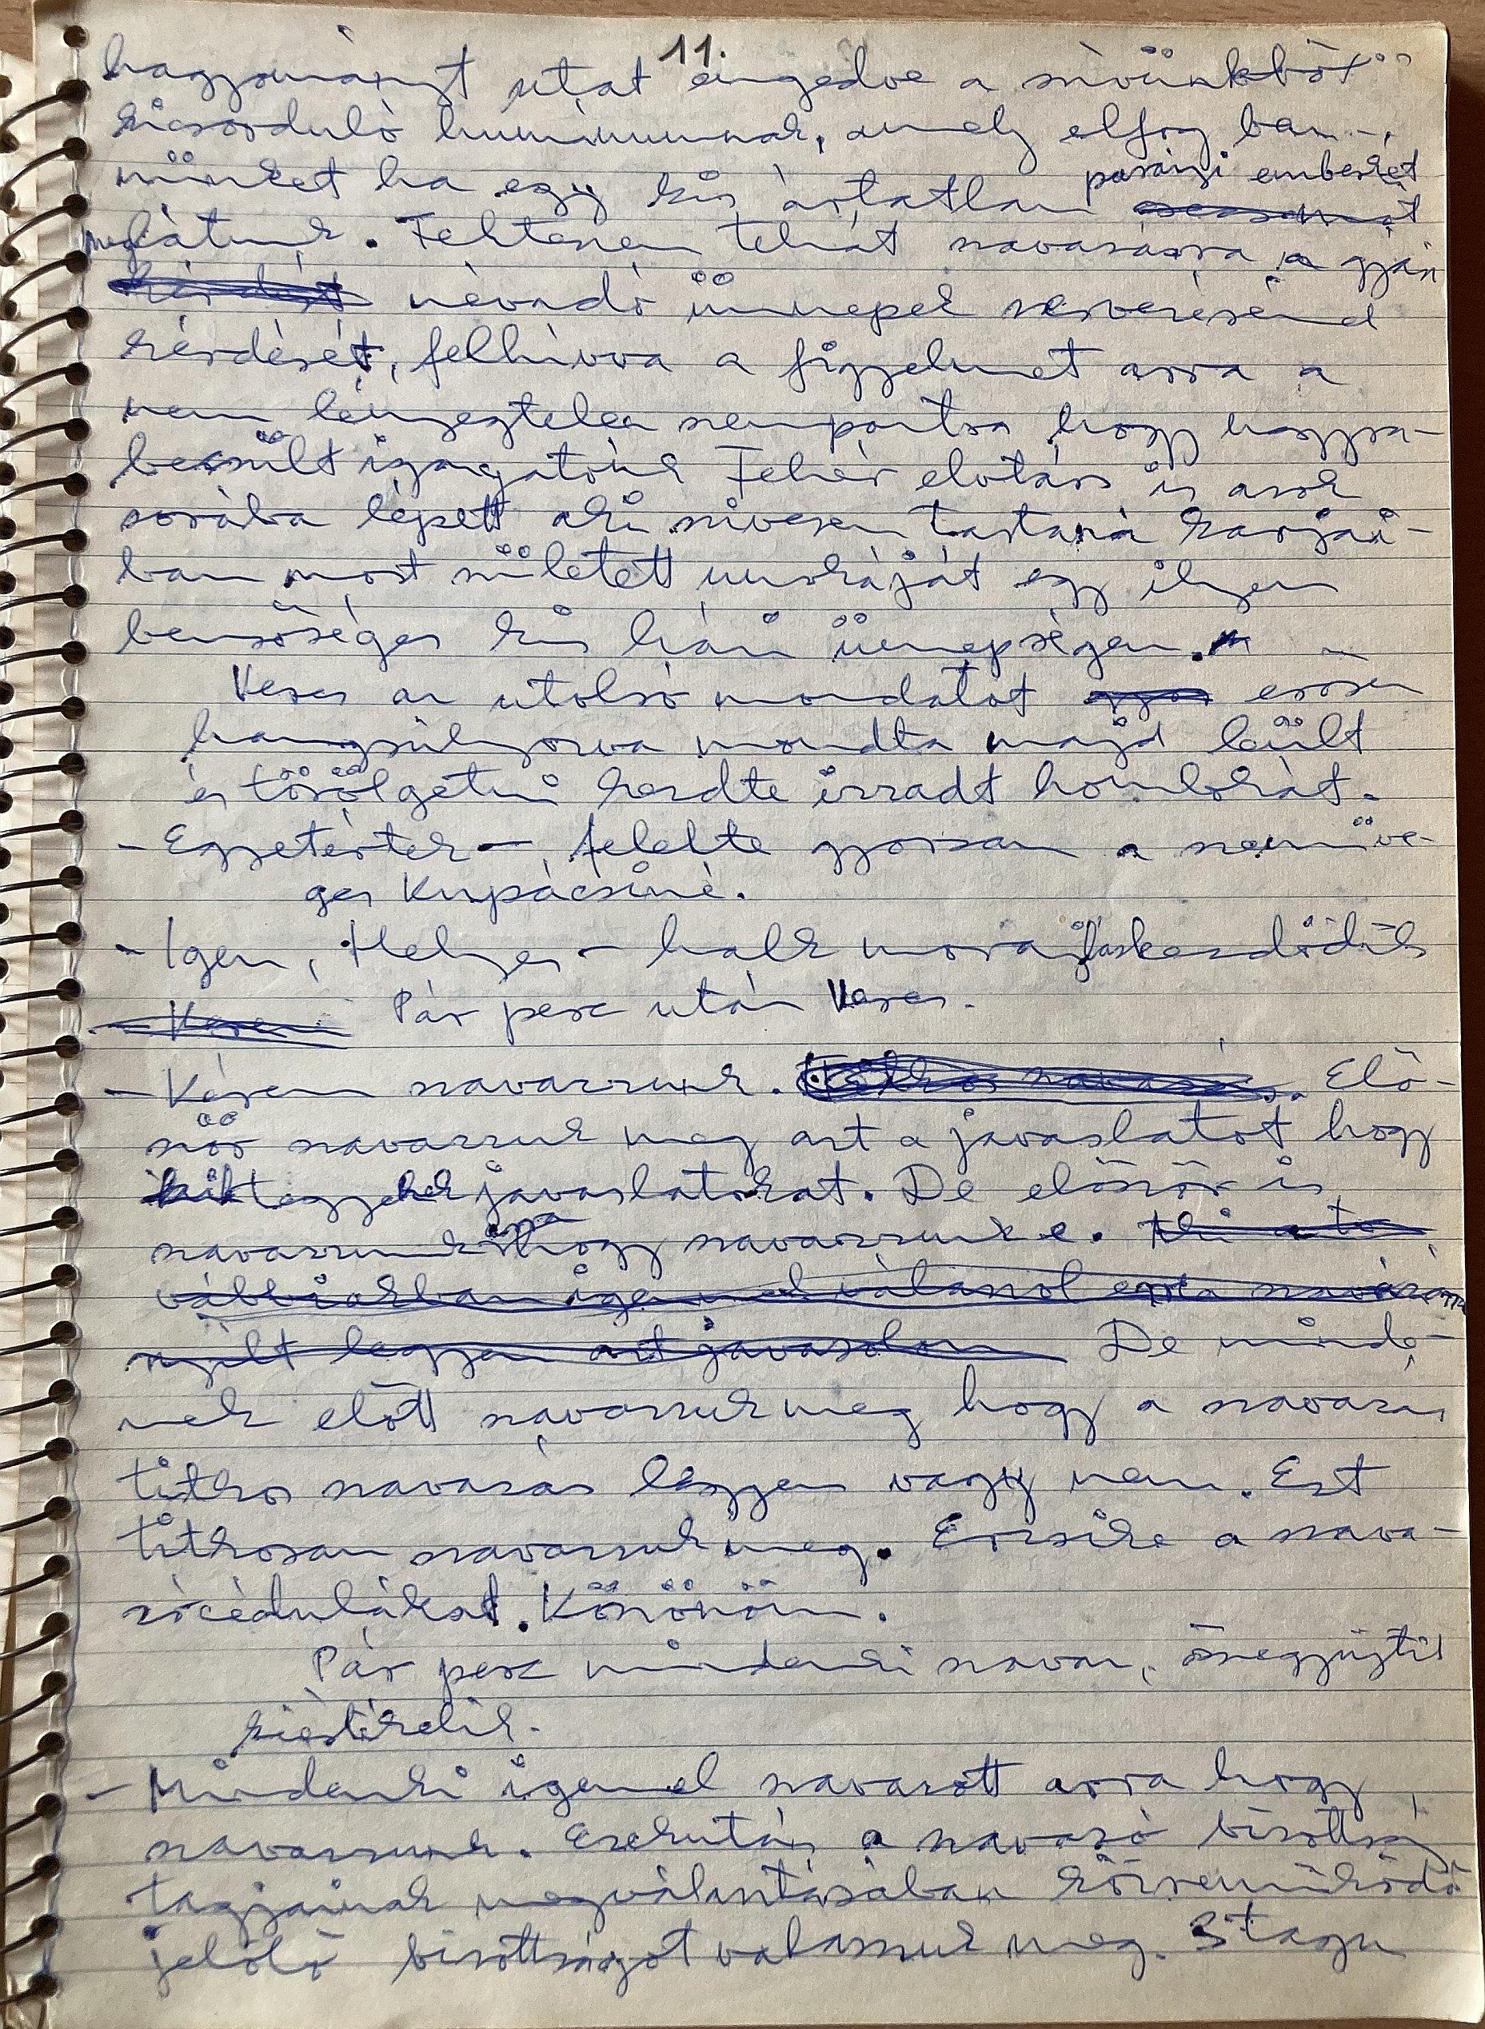 11.
hagyományt utat engedve a szívünkből
kicsorduló humánumnak, amely elfog ben-
nünket ha egy kis ártatlan parányi emberkét
meglátunk. Feltenném tehát szavazásra a gyári
névadó ünnepek
kérdését, felhívva a figyelmet arra a
nem lényegtelen szempontra hogy nagyra-
becsült igazgatónk Fehér elvtárs is azok
sorába lépett aki szívesen tartaná karjai-
ban most született unokáját egy ilyen
bensőséges kis házi ünnepségen.
Veres az utolsó mondatot erősen
hangsúlyozva mondta majd leült
és törölgetni kezdte izzadt homlokát.
- Egyetértek - felelte gyorsan a szemüve-
ges Kupácsiné.
- Igen, Helyes - halk moraj
Pár perc után Veres.
- Kérem szavazzunk. Elő-
ször szavazzuk meg azt a javaslatot hogy
tegyenek javaslatokat. De először is
szavazzunk arra hogy szavazzunk e.
De minde-
nek előtt szavazzuk meg hogy a szavazás
titkos szavazás legyen vagy nem. Ezt
titkosan szavazzuk meg. Erzsike a szava-
zócédulákat. Köszönöm.
Pár perc mindenki szavaz, összegyűjtik
kiértékelik.
- Mindenki igennel szavazott arra hogy
szavazzunk. Ezekután a szavazó bizottság
tagjainak megválasztásában közreműködő
jelölő bizottságot válasszuk meg. 3 tagú